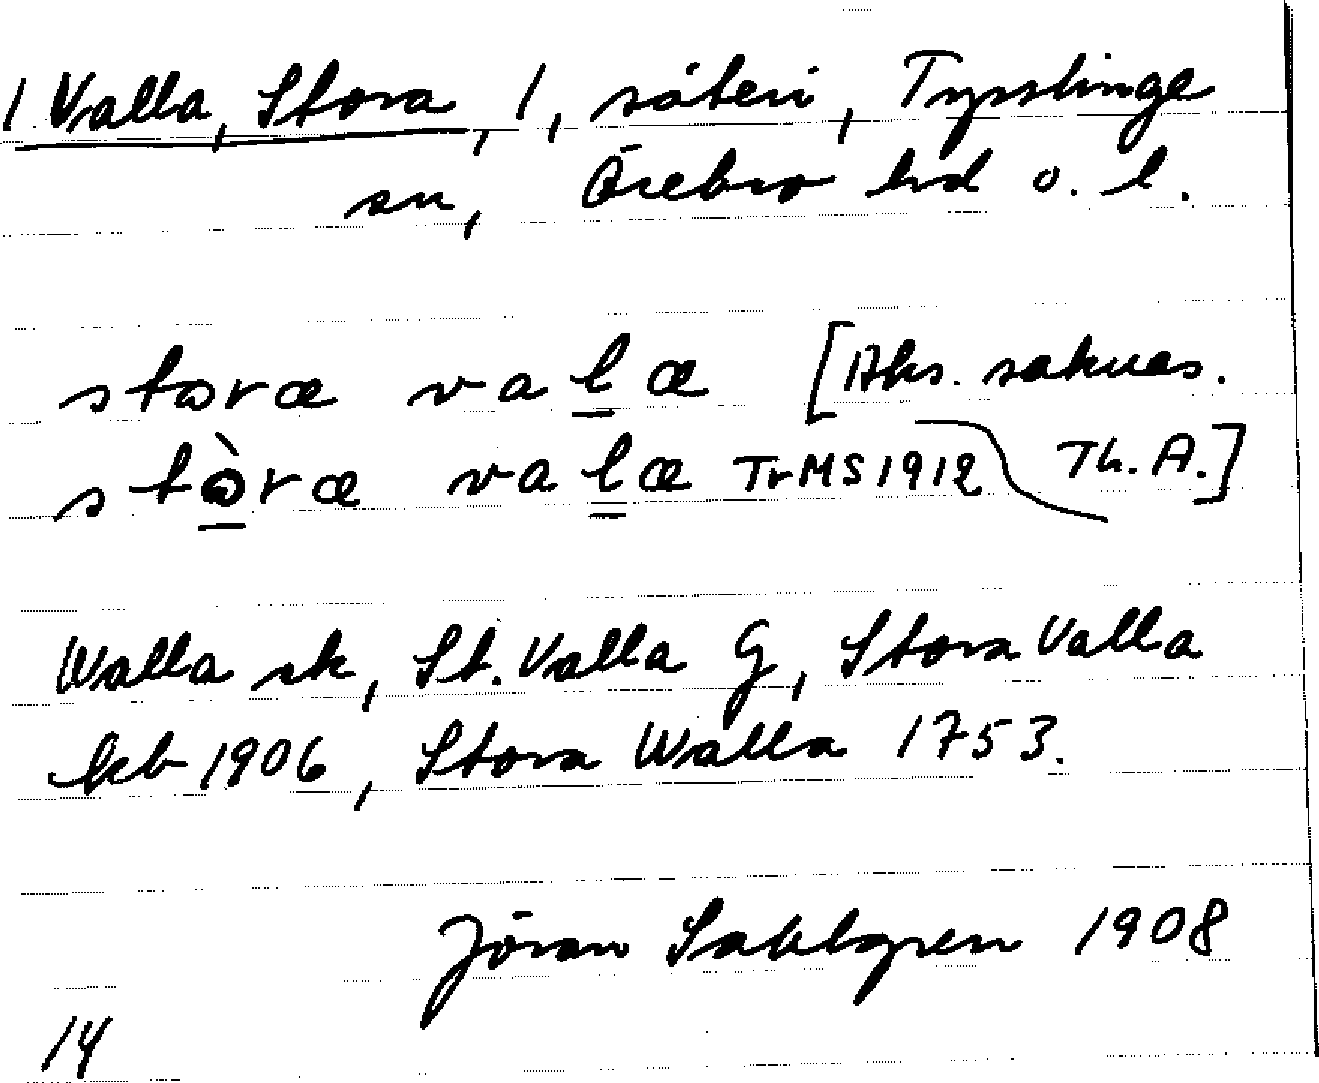 1 Valla, Stora, 1, säteri, Tysslinge
sn, Örebro hd o. l.
storæ valæ [Aks. saknas.
stòræ valæ TrMS 1912 Th. A.]
Walla sk, St. Valla G, Stora Valla
kb 1906, Stora Walla 1753.
Jöran Sahlgren 1908
14